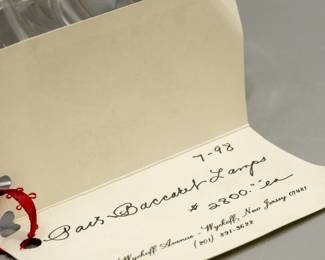 7-98
Pair Baccarat Lamps
$2800.- ea
Wyckoff Avenue - Wyckoff, New Jersey 07481
(201) 891-3622